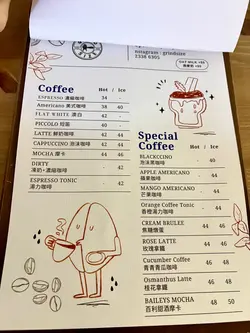 instagram : grindsize
2336 6395
OAT MILK +$5
燕麥奶 +$5
Coffee Hot / Ice
ESPRESSO 濃縮咖啡 34 -
Americano 美式咖啡 38 40
FLAT WHITE 澳白 42 -
PICCOLO 短笛 40 -
LATTE 鮮奶咖啡 42 44
CAPPUCCINO 泡沫咖啡 42 44
MOCHA 摩卡 44 46
DIRTY - 42
凍奶+濃縮咖啡
ESPRESSO TONIC - 44
湯力咖啡
Special
Coffee Hot / Ice
BLACKCCINO - 42
泡沫黑咖啡
APPLE AMERICANO - 44
蘋果咖啡
MANGO AMERICANO - 44
芒果咖啡
Orange Coffee Tonic - 44
香橙湯力咖啡
CREAM BRULEE 44 46
焦糖燉蛋
ROSE LATTE 44 46
玫瑰拿鐵
Cucumber Coffee 46 48
青青青瓜咖啡
Osmanthus Latte 46 48
桂花拿鐵
BAILEYS MOCHA 48 50
百利甜酒摩卡